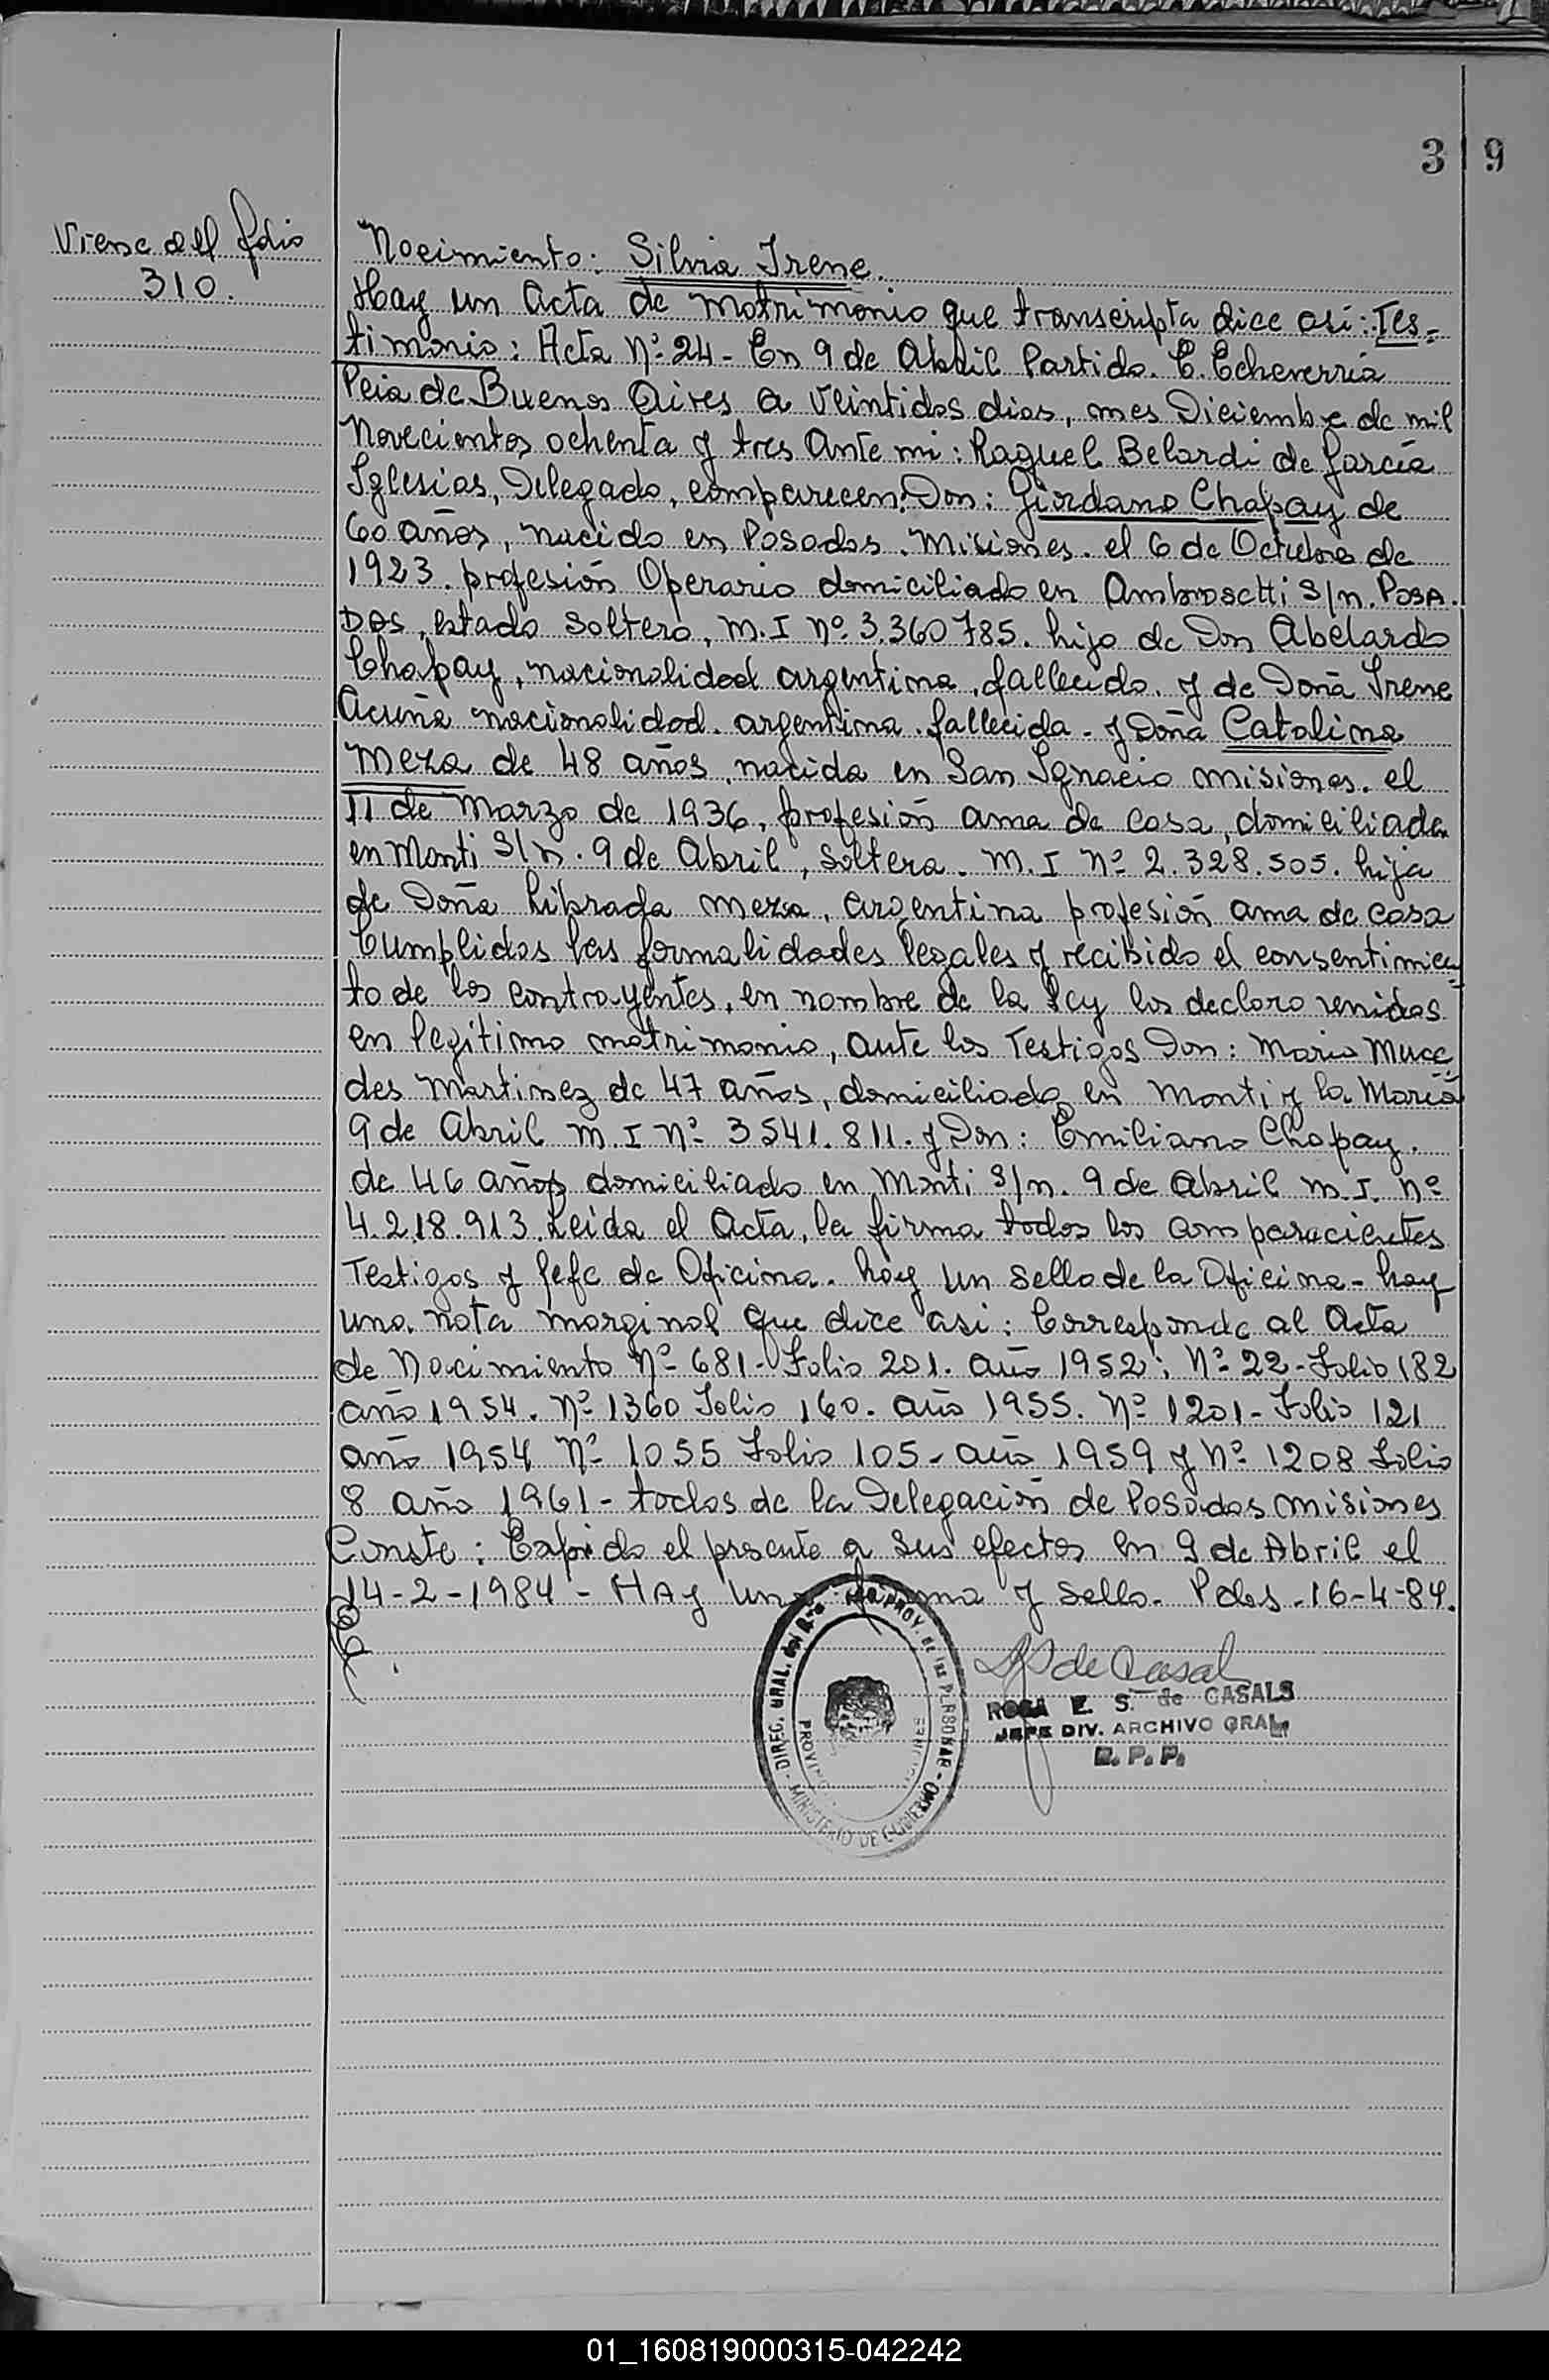 319
Viene del folio
310.
Nacimiento: Silvia Irene.
Hay un Acta de Matrimonio que transcripta dice asi: Tes-
timonio: Acta Nº 24- En 9 de Abril Partido. E. Echeverria
Pcia de Buenos Aires a veintidos dias, mes Diciembre de mil
Novecientos ochenta y tres Ante mi: Raquel Belardi de Garcia
Iglesias, Delegado, comparecen: Don: Giordano Chapay de
60 años, nacido en Posadas. Misiones. el 6 de Octubre de
1923. profesión Operario domiciliado en Ambrosetti S/n. POSA.
DAS, estado soltero, M.I Nº 3.360785. hijo de Don Abelardo
Chapay, nacionalidad argentina, fallecido. y de Doña Irene
Acuña nacionalidad. argentina. fallecida- y Doña Catalina
Meza de 48 años, nacida en San Ignacio Misiones. el
11 de Marzo de 1936, profesión ama de casa, domiciliada
en Monti S/n. 9 de Abril, soltera. M.I Nº 2.328.505. hija
de Doña Librada Meza, argentina profesión ama de casa
Cumplidos las formalidades legales y recibido el consentimien=
to de los contrayentes, en nombre de la Ley los declaro unidos
en legitimo matrimonio, ante los Testigos Don: Mario Merce
des Martinez de 47 años, domiciliado en Monti y la Maria
9 de Abril M.I Nº 3541.811. y Don: Emiliano Chapay.
de 46 años domiciliado en Monti S/n. 9 de Abril M.I. Nº
4.218.913. Leida el Acta, la firma todos los comparecientes
Testigos y Jefe de Oficina. hay un sello de la Oficina- hay
una nota marginal que dice asi: Corresponde al Acta
de Nacimiento Nº 681- Folio 201. año 1952: Nº 22- Folio 182
año 1954. Nº 1360 Folio 160. año 1955. Nº 1201- Folio 121
año 1954 Nº 1055 Folio 105- año 1959 y Nº 1208 Folio
8 año 1961- todos de la Delegación de Posadas Misiones
Conste: Expido el presente a sus efectos en 9 de Abril el
14-2-1984- HAy una firma y sello. Pdas. 16-4-84.
DIREC. GRAL. del Rº PROV. DE LAS PERSONAS - MINISTERIO DE GOBIERNO
de Casals
ROSA E. S. de CASALS
JEFE DIV. ARCHIVO GRAL.
R. P. P.
01_160819000315-042242